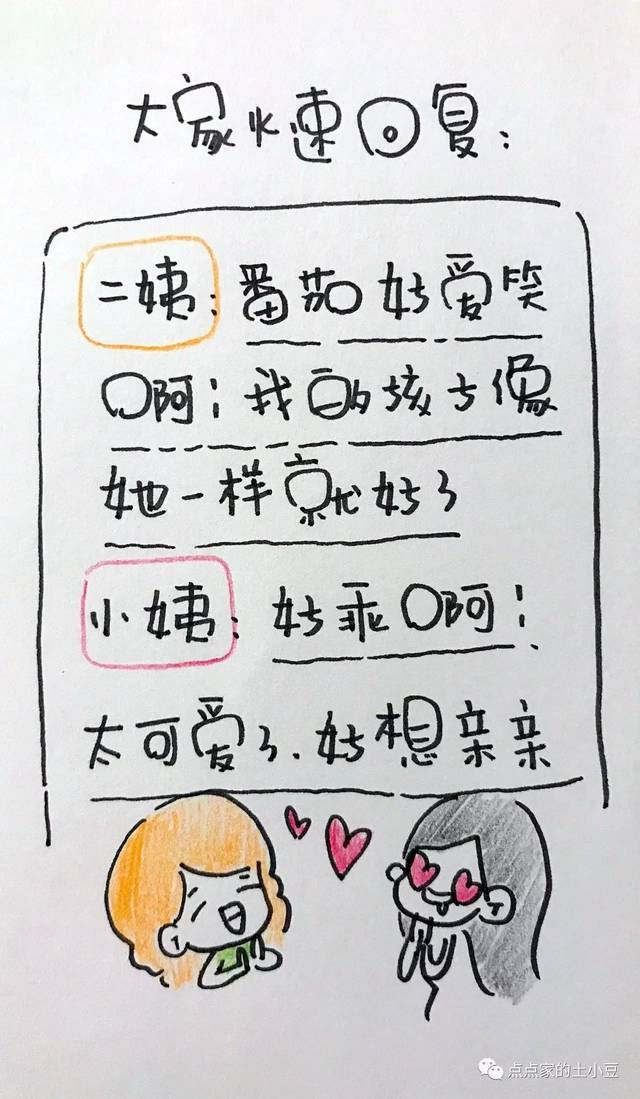 大家火速回复：
二姨：番茄好爱笑
啊！我的孩子像
她一样就好了
小姨：好乖啊！
太可爱了、好想亲亲
点点家的土小豆